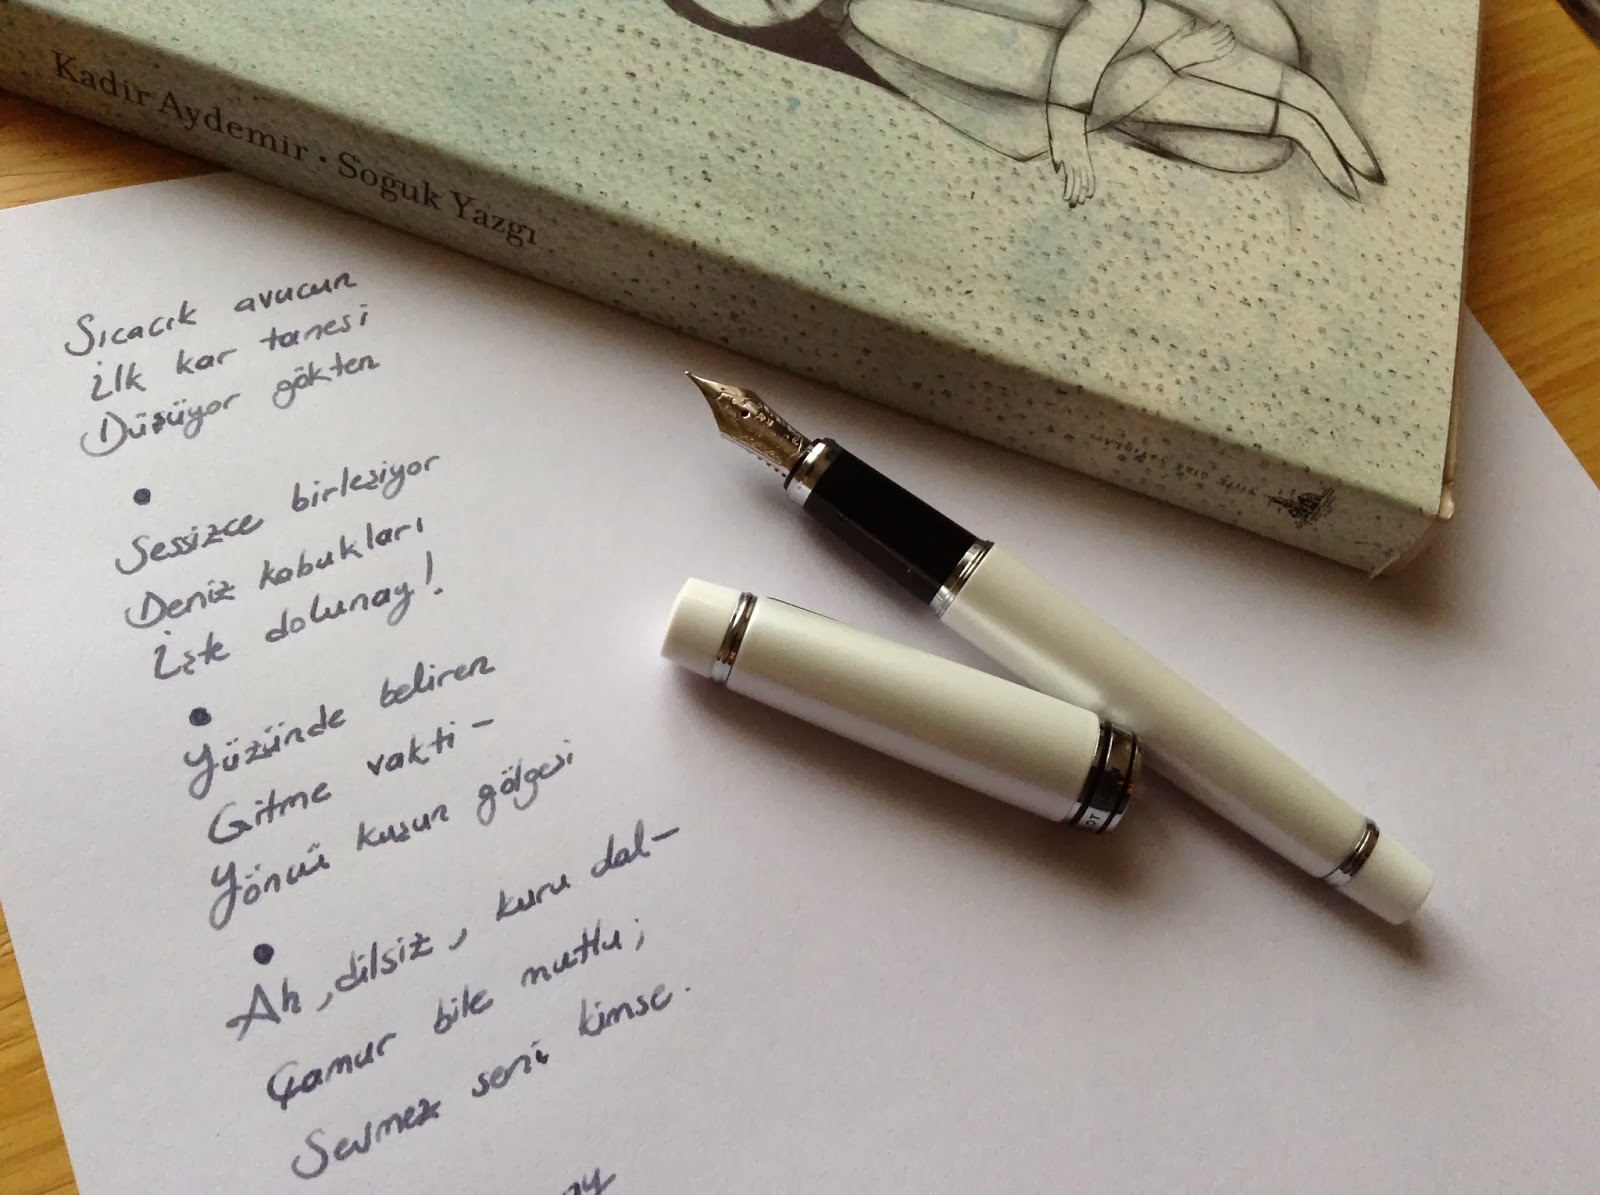 Kadir Aydemir • Soğuk Yazgı
Sıcacık avucun
İlk kar tanesi
Düşüyor gökten
•
Sessizce birleşiyor
Deniz kabukları
İşte dolunay!
•
Yüzünde beliren
Gitme vakti –
Yöncü kuşun gölgesi
•
Ah, dilsiz, kuru dal –
Çamur bile mutlu;
Sevmez seni kimse.
ay
OT